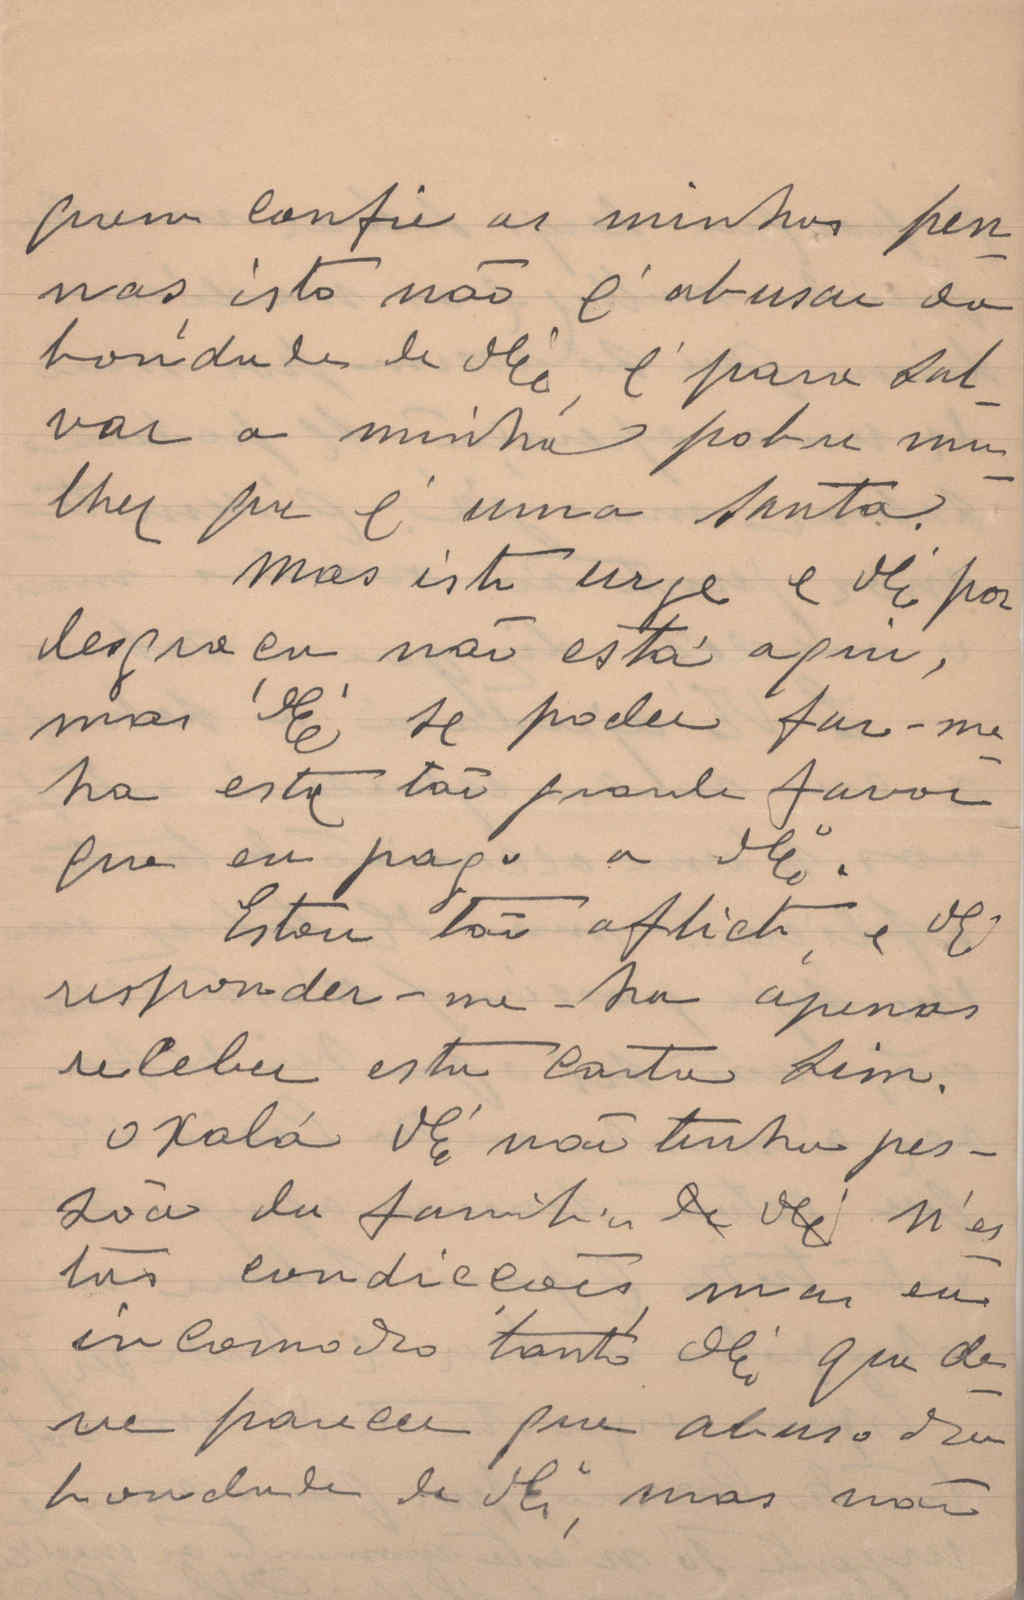 quem confie as minhas pen
nas, isto não é abusar da
bondade de VEx.ª, é para sal-
var a minha pobre mu-
lher que é uma santa.
Mas isto urge e VEx.ª por
desgraça não está aqui,
mas VEx.ª se poder far-me
ha este tão grande favor
que eu pago a VEx.ª.
Estou tão aflicto, e VEx.ª
responder-me-ha apenas
receber esta carta sim.
Oxalá VEx.ª não tenha pes-
sôa da familia de VEx.ª n'es
tas condicções, mas eu
incomodo tanto VEx.ª que de-
ve parecer que abuso da
bondade de VEx.ª, mas não